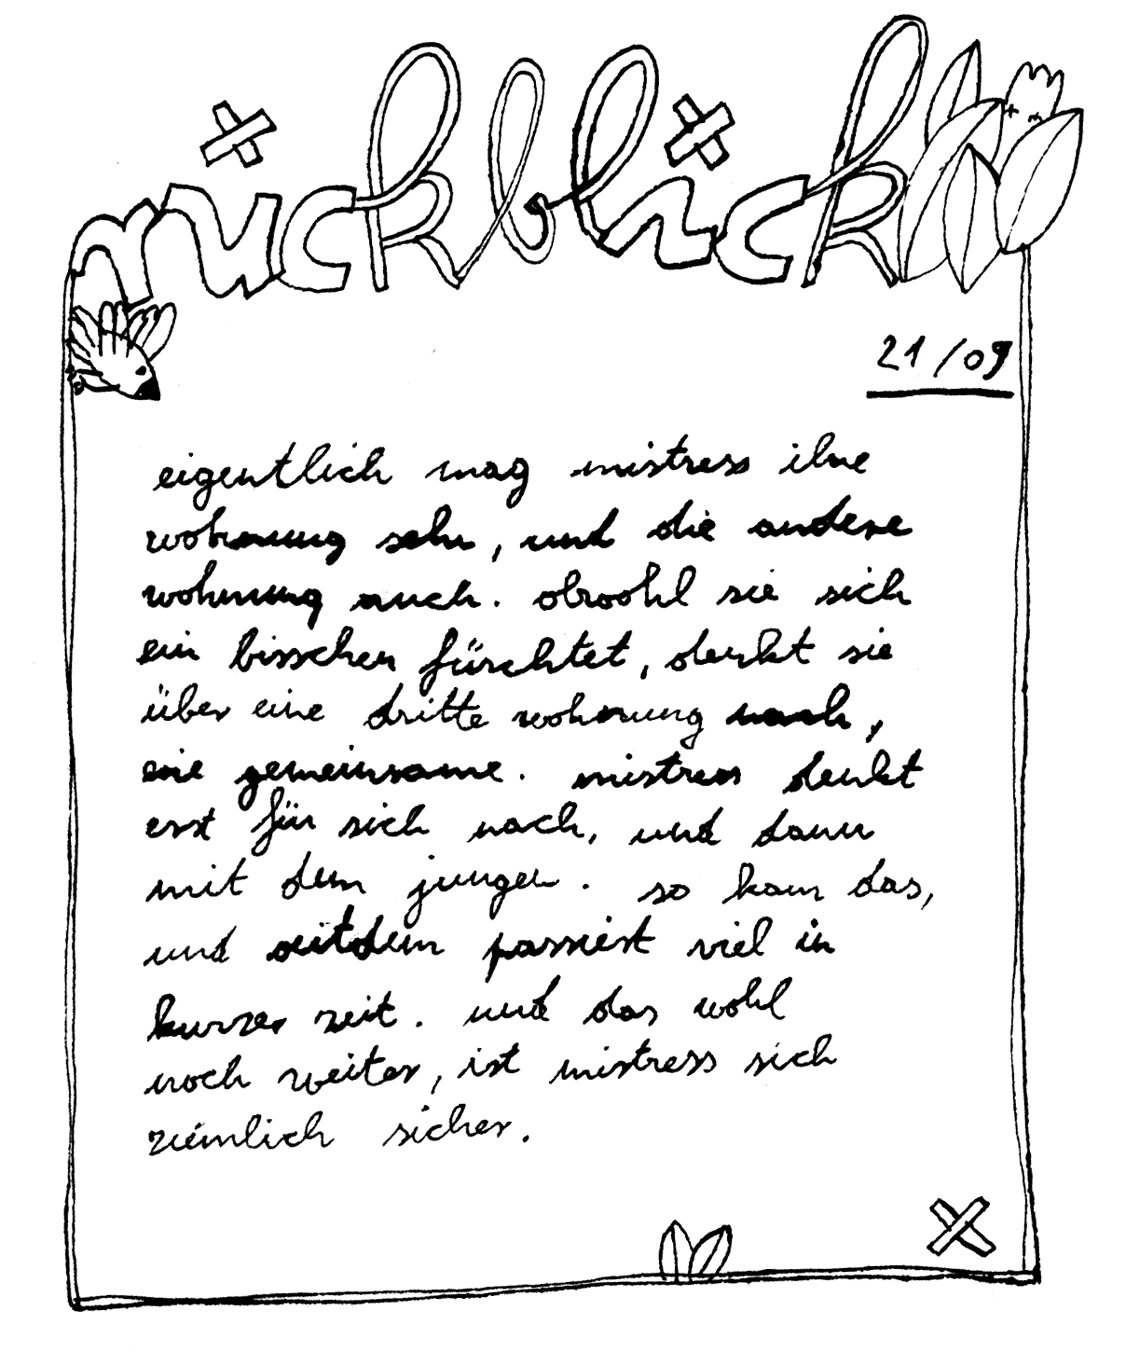 rückblick
21/09
eigentlich mag mistress ihre
wohnung sehr, und die andere
wohnung auch. obwohl sie sich
ein bisschen fürchtet, denkt sie
über eine dritte wohnung nach,
eine gemeinsame. mistress denkt
erst für sich nach, und dann
mit dem jungen. so kam das,
und seitdem passiert viel in
kurzer zeit. und das wohl
noch weiter, ist mistress sich
ziemlich sicher.